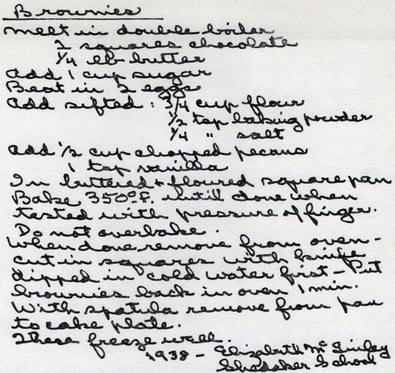 Brownies
Melt in double boiler
2 squares chocolate
1/4 lb butter
Add 1 cup sugar
Beat in 2 eggs
Add sifted: 3/4 cup flour
1/2 tsp baking powder
1/4 " salt
Add 1/2 cup chopped pecans
1 tsp vanilla
In buttered & floured square pan
Bake 350°F. until done when
tested with pressure of finger.
Do not overbake.
When done, remove from oven -
cut in squares with knife
dipped in cold water first - Put
brownies back in oven 1 min.
With spatula remove from pan
to cake plate.
These freeze well.
1938 - Elizabeth McGinley
School